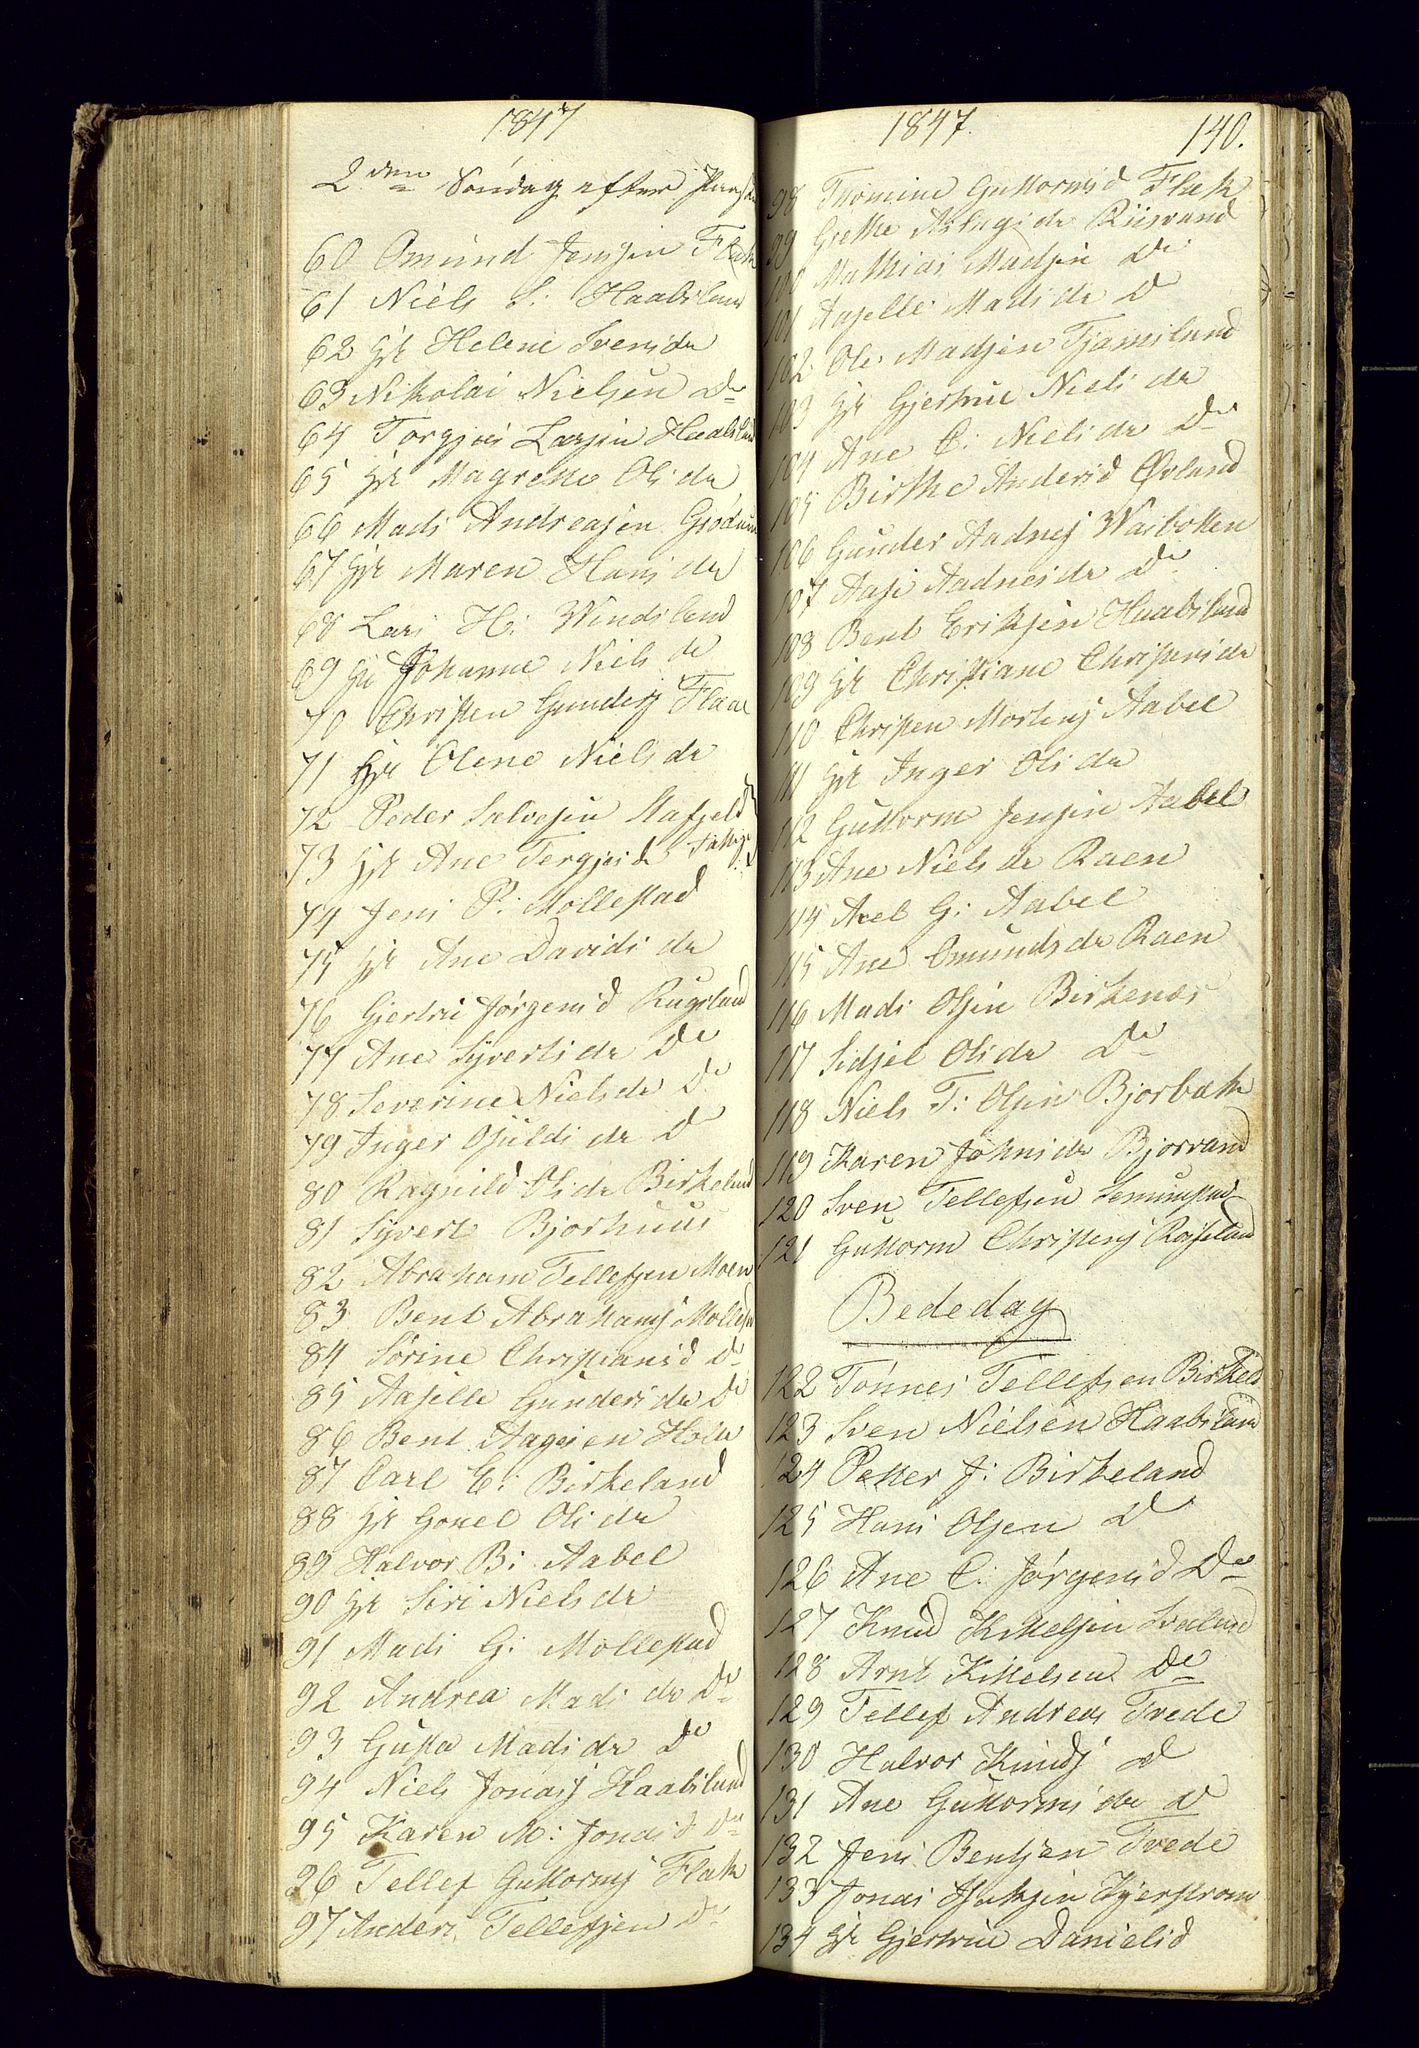 1847
2den Søndag efter Paaske
60 Omund Jensen Flak
61 Niels S: Haabsland
62 hst Helene Svensdr
63 Nikolai Nielsen Do
64 Torgjus Larsen Haabsland
65 hst Magrethe Olsdr
66 Mads Andreasen Grødum
67 hst Maren Hansdr
68 Lars H: Windsland
69 hst Johanne Nielsdr
70 Christen Gunders Flaae
71 hst Olene Nielsdr
72 Peder Salvesen
73 hst Ane Tergjesdr
74 Jens P: Mollestad
75 hst Ane Davidsdr
76 Gjertrue Jørgensd Rugsland
77 Ane Syvertsdr Do
78 Severine Nielsdr Do
79 Inger Osuldsdr Do
80 Ragnild Olsdr Birkeland
81 Syvert Bjorhuus
82 Abraham Tellefsen Moen
83 Bent Abrahams Mollest
84 Sørine Christiansd Do
85 Aasille Gundersdr Do
86 Bent Aagesen
87 Carl C: Birkeland
88 hst Gonel Olsdr
89 Halvor B: Aabel
90 hst Siri Nielsdr
91 Mads G: Mollestad
92 Andrea Madsdr Do
93 Gusta Madsdr Do
94 Niels Jonass Haabsland
95 Karen M: Jonasd Do
96 Tellef Guttorms Flak
97 Anders Tellefsen Do
1847.
140.
98 Thomine Guttormsd Flak
99 Grethe Aslagsdr Riisvand
100 Mathias Madsen Do
101 Aaselle Madsdr Do
102 Ole Madsen Tjamsland
103 hst Gjertrue Nielsdr
104 Ane C: Nielsdr Do
105 Birthe Andersd Øvland
106 Gunder Aadnes Waibotten
107 Aase Aadnesdr Do
108 Bent Eriksen Haabsland
109 hst Christiane Christensdr
110 Christen Mortens Aabel
111 hst Inger Olsdr
112 Guttorm Jensen Aabel
113 Ane Nielsdr Raen
114 Axel G: Aabel
115 Ane Omundsdr Raen
116 Mads Olsen Birkenes
117 Sidsel Olsdr Do
118 Niels T: Olsen Bjorbæk
119 Karen Johnsdr Bjorvand
120 Sven Tellefsen
121 Guttorm Christens
Bededag
122 Tønnes Tellefsen Birkeld
123 Sven Nielsen Haabsland
124 Petter J: Birkeland
125 Hans Olsen Do
126 Ane C: Jørgensd Do
127 Knud Kittelsen Svaland
128 Arnt Kittelsen Do
129 Tellef Andreas Tvede
130 Halvor Knuds Do
131 Ane Guttormsdr Do
132 Jens Bentsen Tvede
133 Jonas Isaksen
134 hst Gjertrue Danielsd